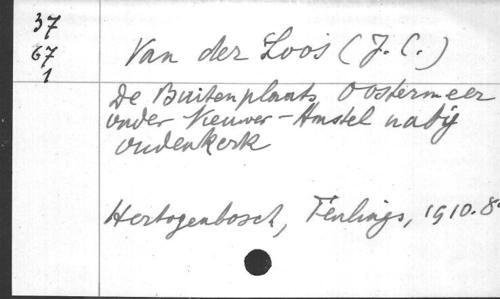 37
67
1
Van der Loos (J. C.)
De Buitenplaats Oostermeer
onder Nieuwer-Amstel nabij
Oudenkerk
Hertogenbosch, Teulings, 1910. 8°